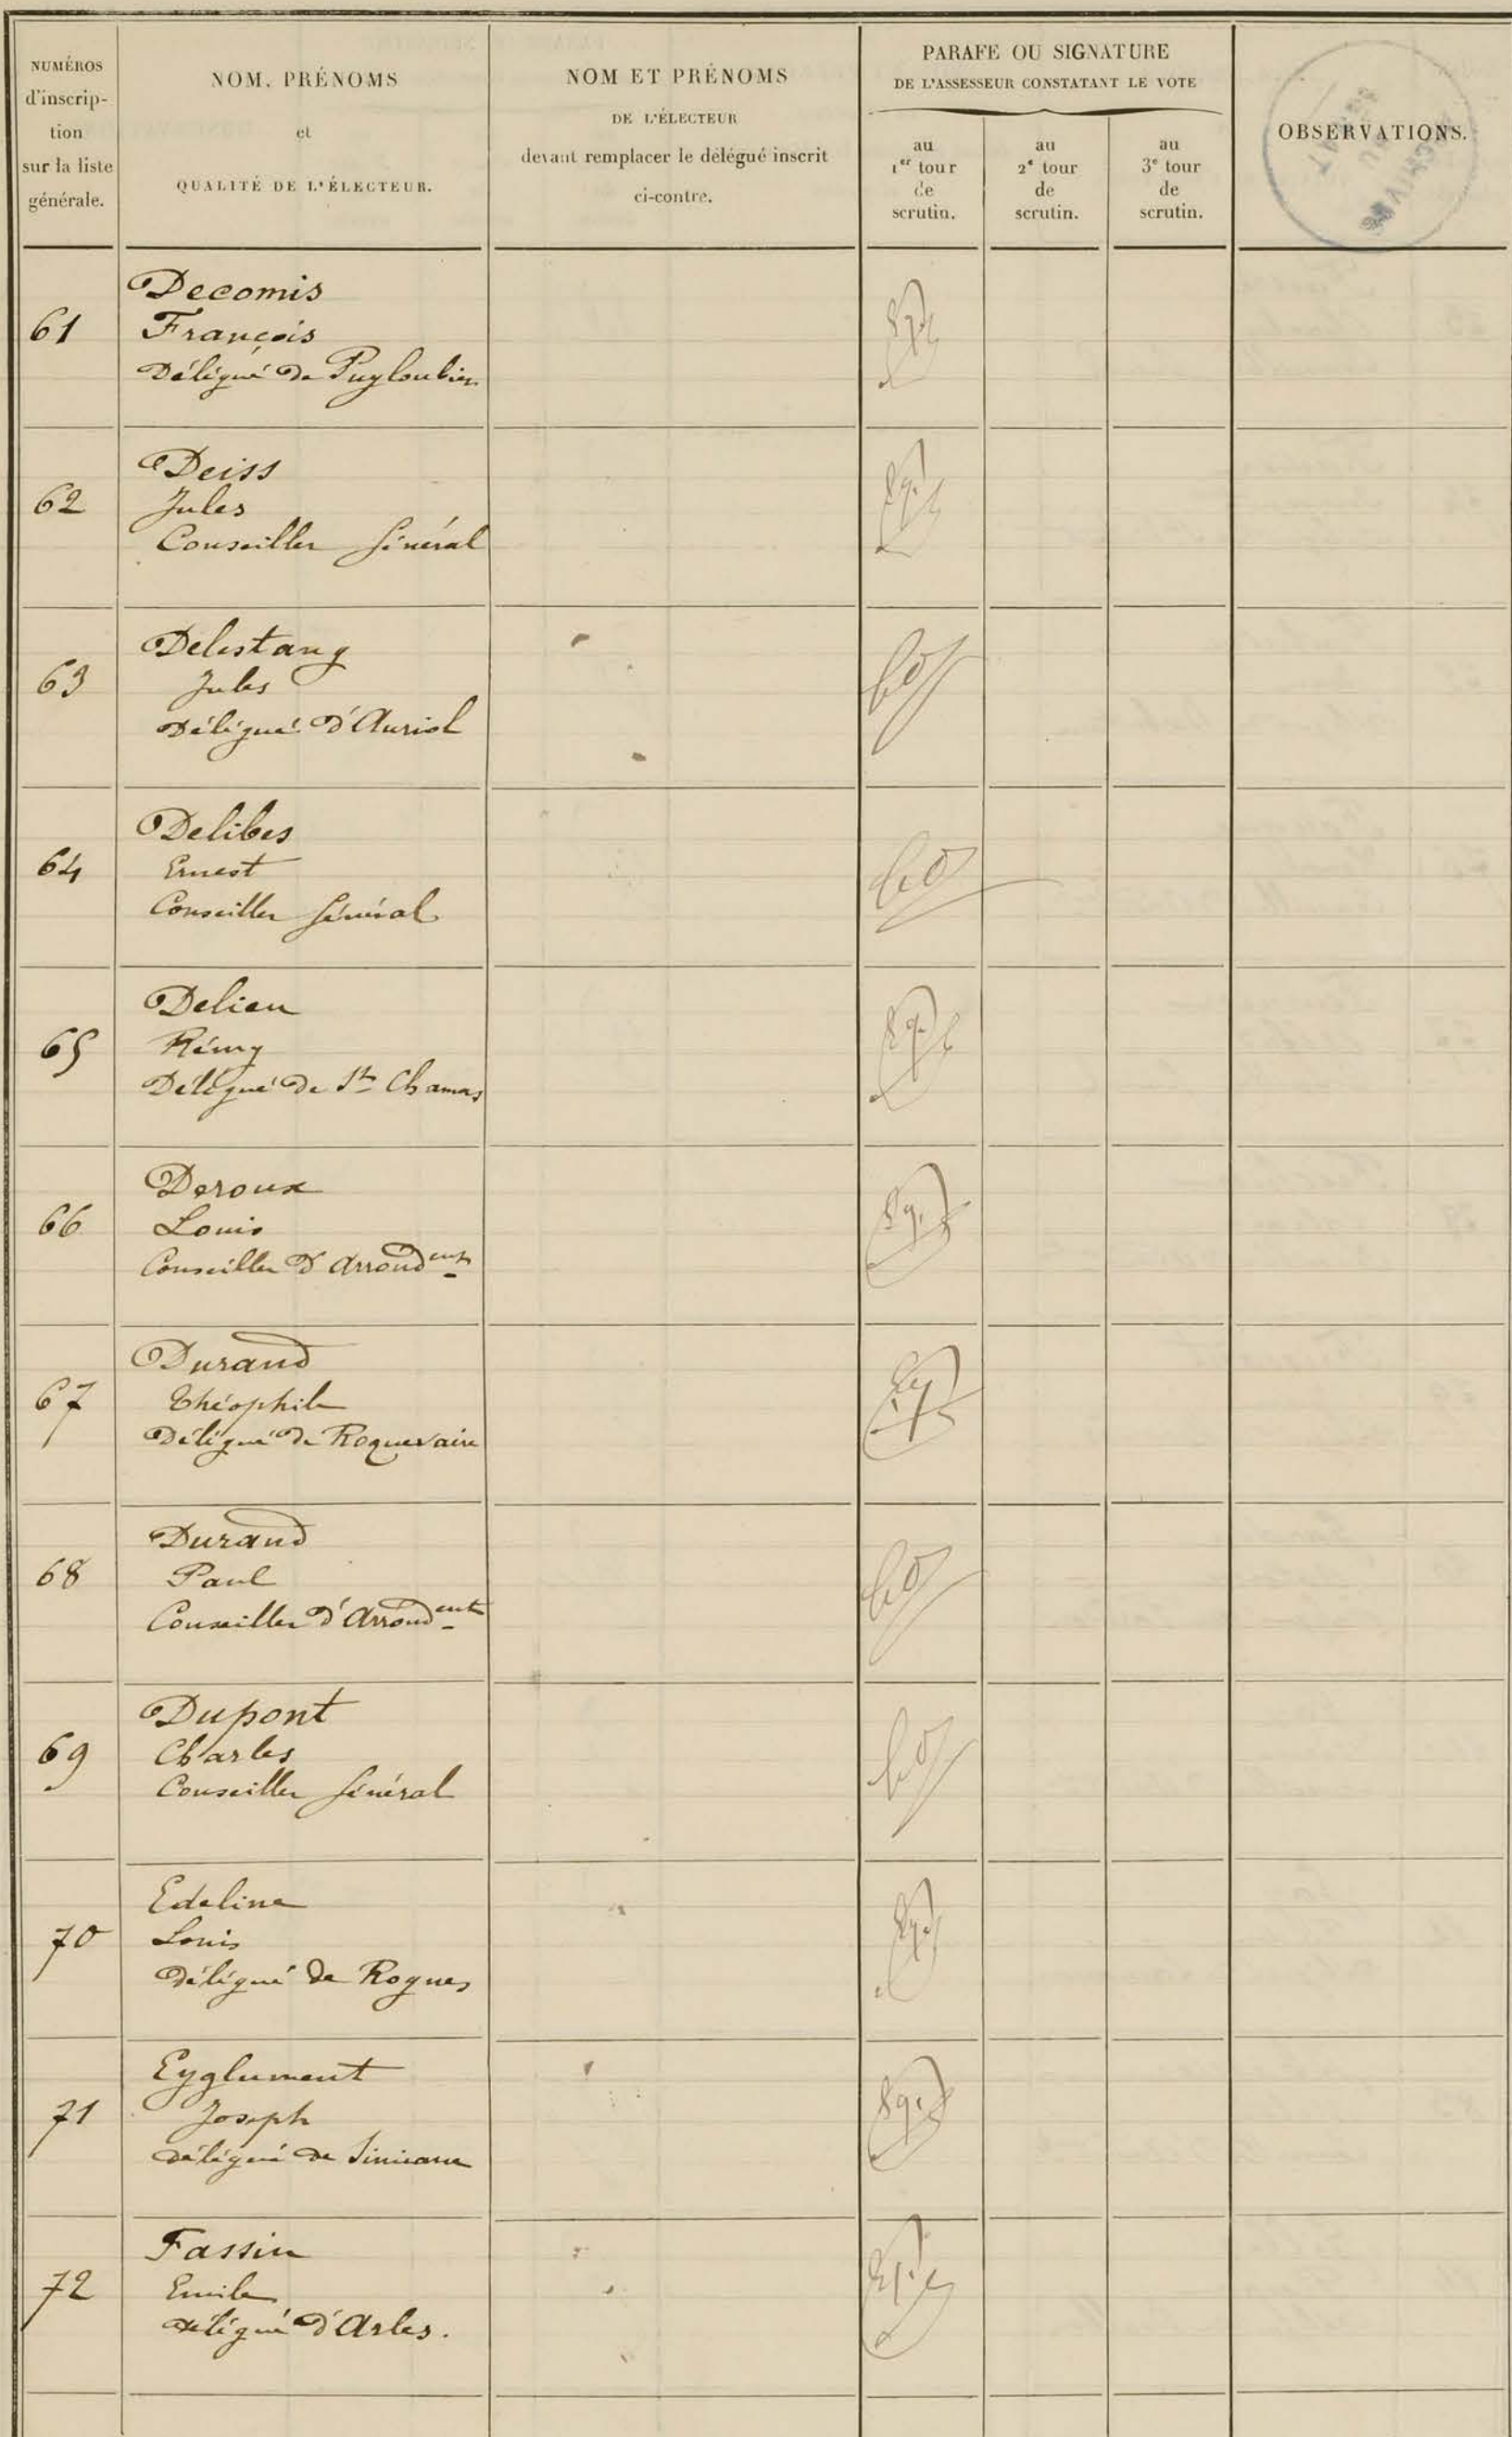 NUMÉROS
d'inscrip-
tion
sur la liste
générale.
NOM, PRÉNOMS
et
QUALITÉ DE L'ÉLECTEUR.
NOM ET PRÉNOMS
DE L'ÉLECTEUR
devant remplacer le délégué inscrit
ci-contre.
PARAFE OU SIGNATURE
DE L'ASSESSEUR CONSTATANT LE VOTE
au
1er tour
de
scrutin.
au
2e tour
de
scrutin.
au
3e tour
de
scrutin.
OBSERVATIONS.
61
Decomis
François
Délégué de Puyloubier
62
Deiss
Jules
Conseiller Général
63
Delestang
Jules
Délégué d'Auriol
64
Delibes
Ernest
Conseiller Général
65
Delieu
Rémy
Délégué de St Chamas
66
Deroux
Louis
Conseiller d'Arrondent
67
Durand
Théophile
Délégué de Roquevaire
68
Durand
Paul
Conseiller d'Arrondent
69
Dupont
Charles
Conseiller Général
70
Edeline
Louis
Délégué de Rognes
71
Eyglument
Joseph
délégué de Simiane
72
Fassin
Emile
délégué d'Arles.